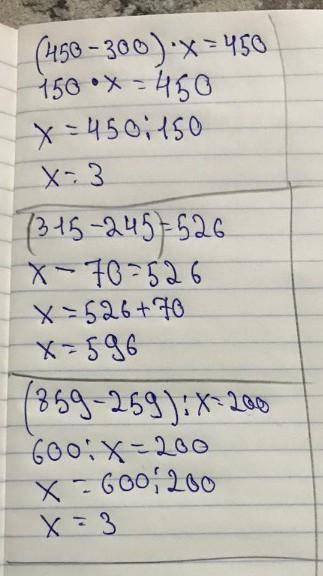 (450-300)·x=450
150·x=450
x=450:150
x=3
(315-245)=526
x-70=526
x=526+70
x=596
(859-259):x=200
600:x=200
x=600:200
x=3